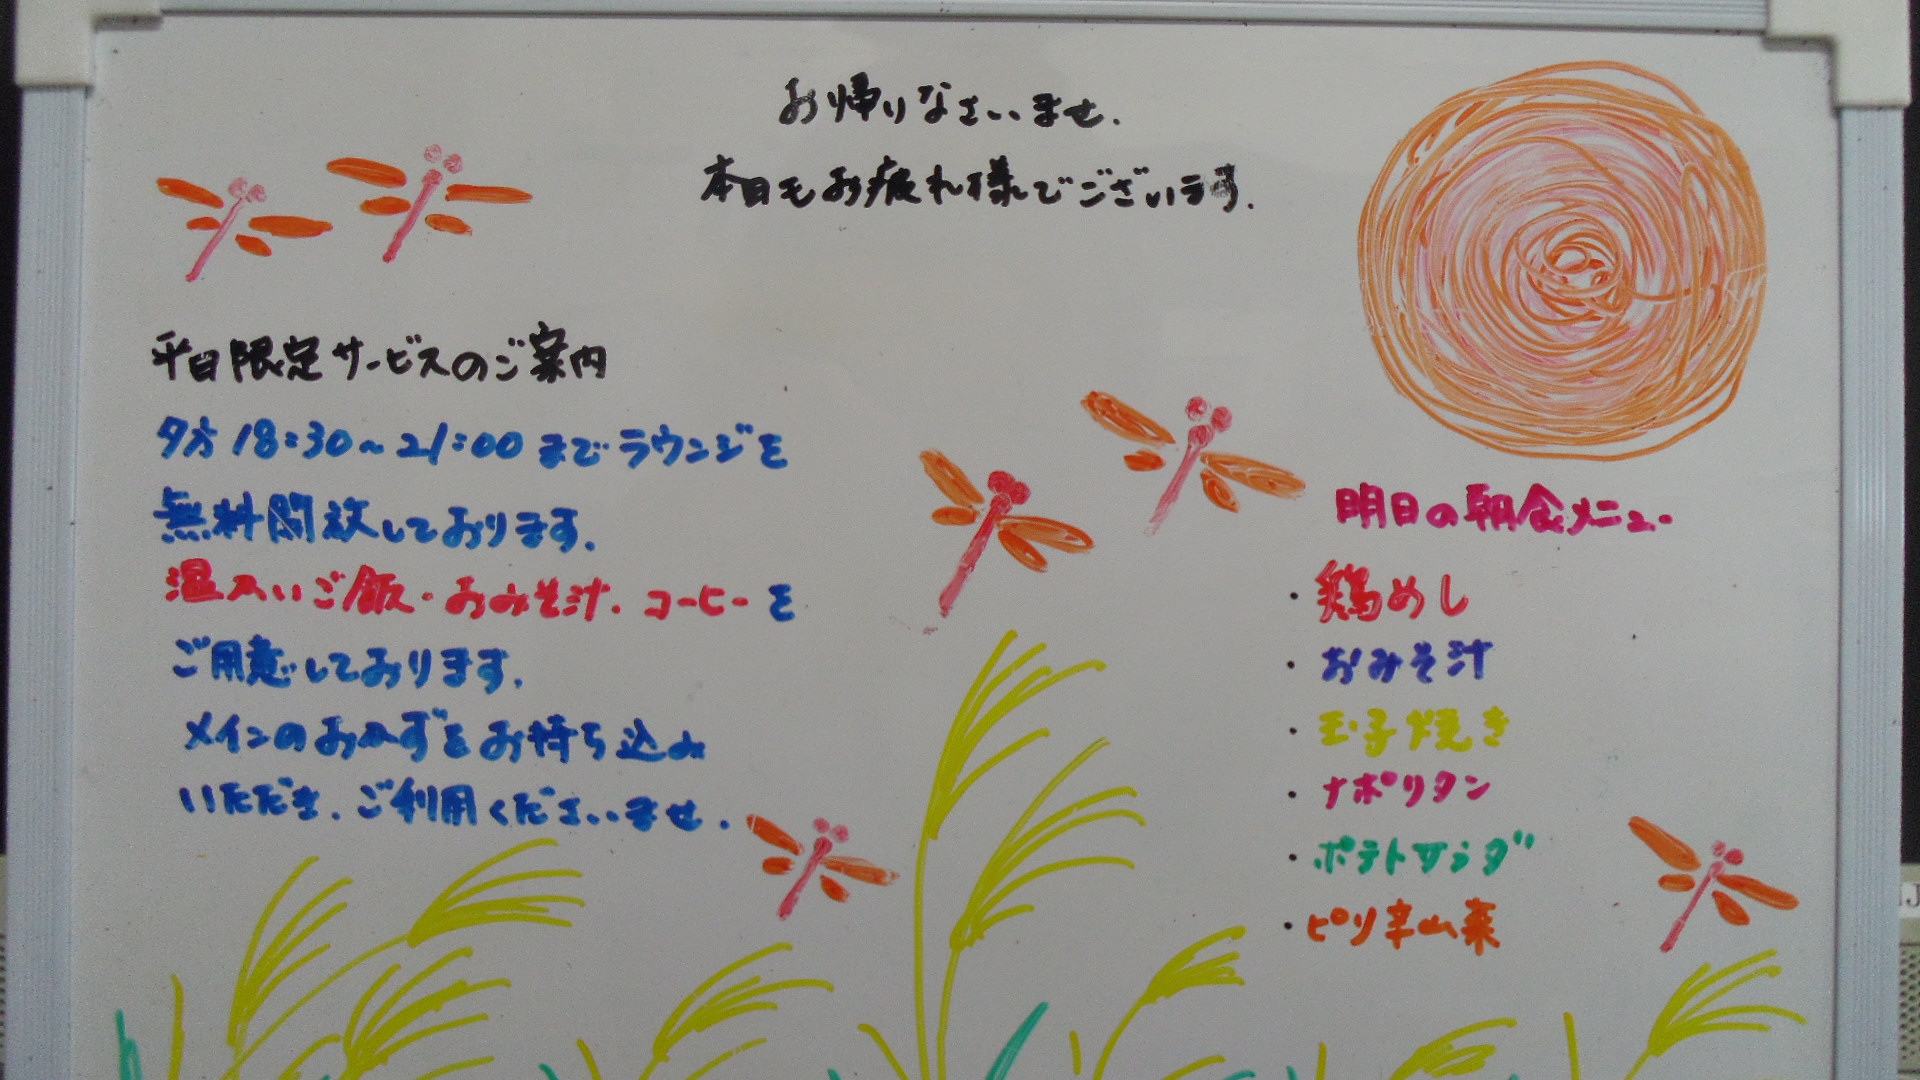 お帰りなさいませ.
本日もお疲れ様でございます.
平日限定サービスのご案内
夕方18:30~21:00までラウンジを
無料開放しております.
温かいご飯・おみそ汁.コーヒーを
ご用意しております.
メインのおかずをお持ち込み
いただき.ご利用くださいませ.
明日の朝食メニュー
・鶏めし
・おみそ汁
・玉子焼き
・ナポリタン
・ポテトサラダ
・ピリ辛山菜